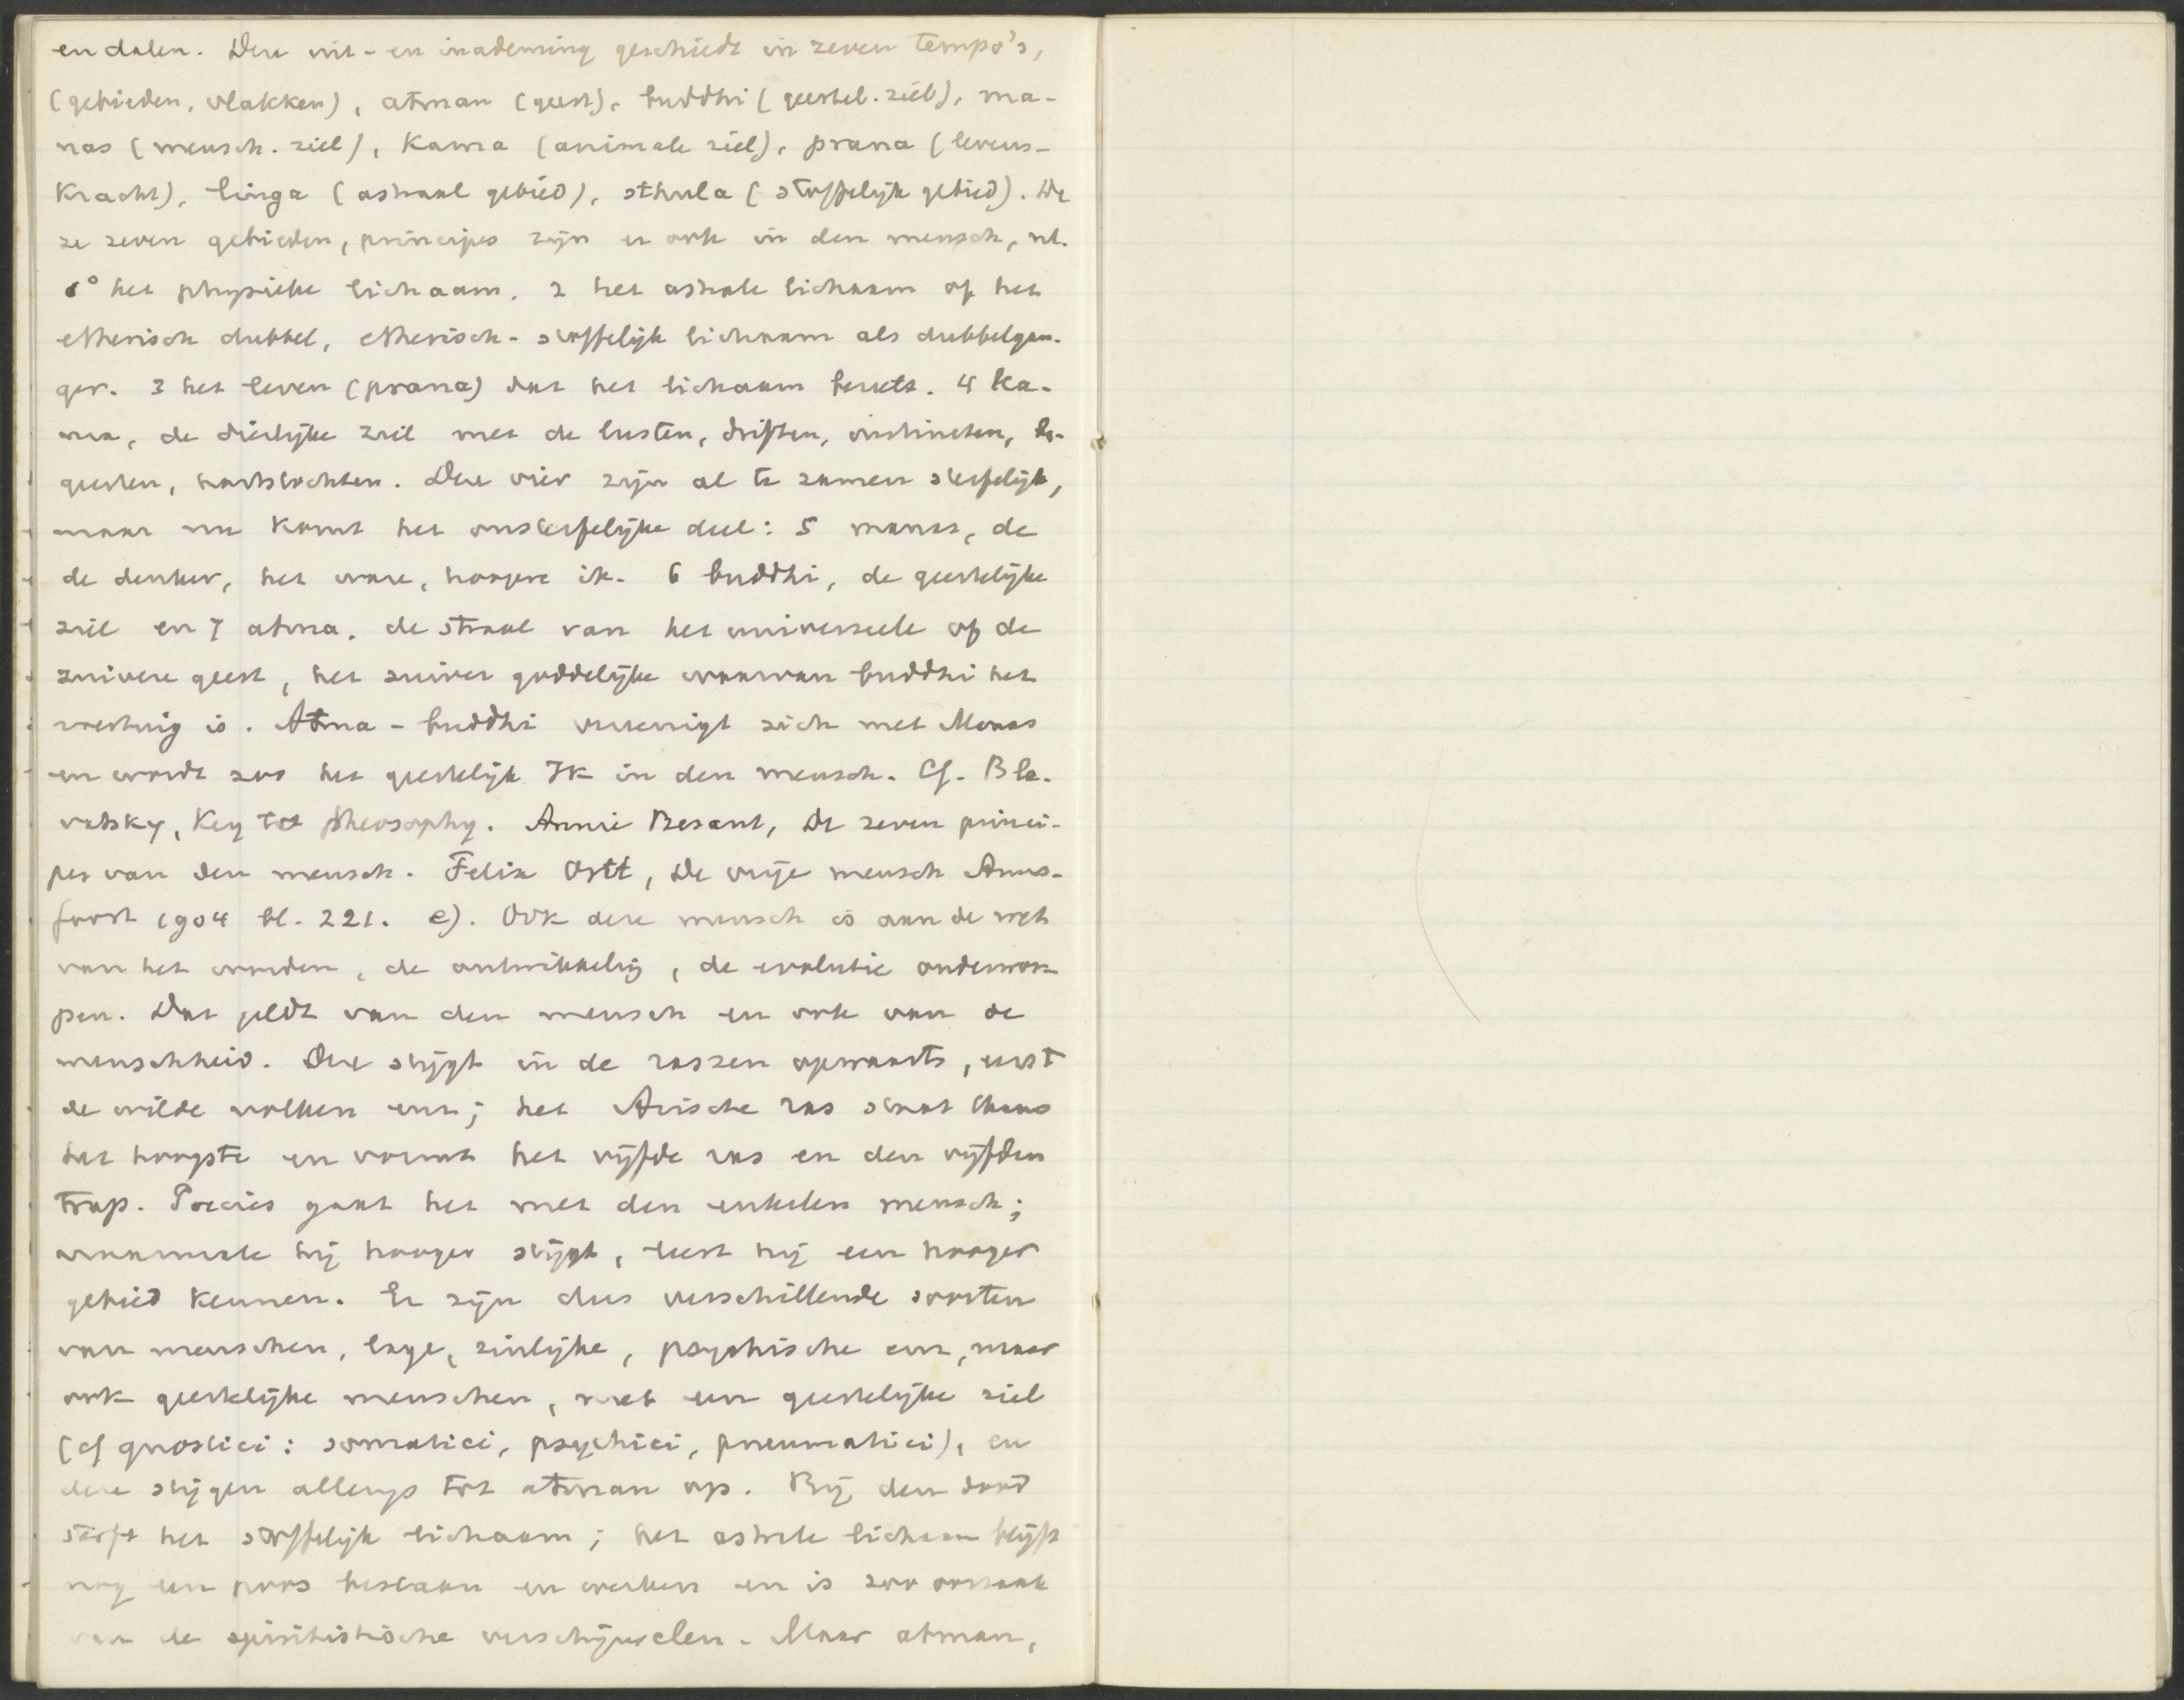 en dalen. Deze uit- en inademing geschiedt in zeven tempo's,
(gebieden, vlakken), atman (geest), buddhi (geestel. ziel), ma-
nas (mensch. ziel), Kama (animale ziel), prana (levens-
kracht), linga (astraal gebied), sthula (stoffelijk gebied). De
ze zeven gebieden, principes zijn er ook in den mensch, nl.
1° het physieke lichaam. 2 het astrale lichaam of het
etherisch dubbel, etherisch-stoffelijk lichaam als dubbelgan-
ger. 3 het leven (prana) dat het lichaam bezielt. 4 Ka-
ma, de dierlijke ziel met de lusten, driften, instincten, be-
geerten, hartstochten. Deze vier zijn al te zamen sterfelijk,
maar nu komt het onsterfelijke deel: 5 manas, de
de denker, het ware, hoogere ik. 6 buddhi, de geestelijke
ziel en 7 atma. de straal van het universeele of de
zuivere geest, het zuiver goddelijke waarvan buddhi het
voertuig is. Atma-buddhi vereenigt zich met Manas
en wordt zoo het geestelijk Ik in den mensch. Cf. Bla-
vatsky, Key to theosophy. Annie Besant, De zeven princi-
pes van den mensch. Felix Ortt, De vrije mensch Amers-
foort 1904 bl. 221. e). Ook deze mensch is aan de wet
van het worden, de ontwikkeling, de evolutie onderwor
pen. Dat geldt van den mensch en ook van de
menschheid. Deze stijgt in de rassen opwaarts, eerst
de wilde volken enz; het Arische ras staat thans
het hoogste en vormt het vijfde ras en den vijfden
trap. Precies gaat het met den enkelen mensch;
naarmate hij hooger stijgt, leert hij een hooger
gebied kennen. Er zijn dus verschillende soorten
van menschen, lage, zinlijke, psychische enz, maar
ook geestelijke menschen, met een geestelijke ziel
(cf gnostici: somatici, psychici, pneumatici), en
deze stijgen allengs tot atman op. Bij den dood
sterft het stoffelijk lichaam; het astrale lichaam blijft
nog een poos bestaan en werken en is zoo oorzaak
van de spiritistische verschijnselen. Maar atman,